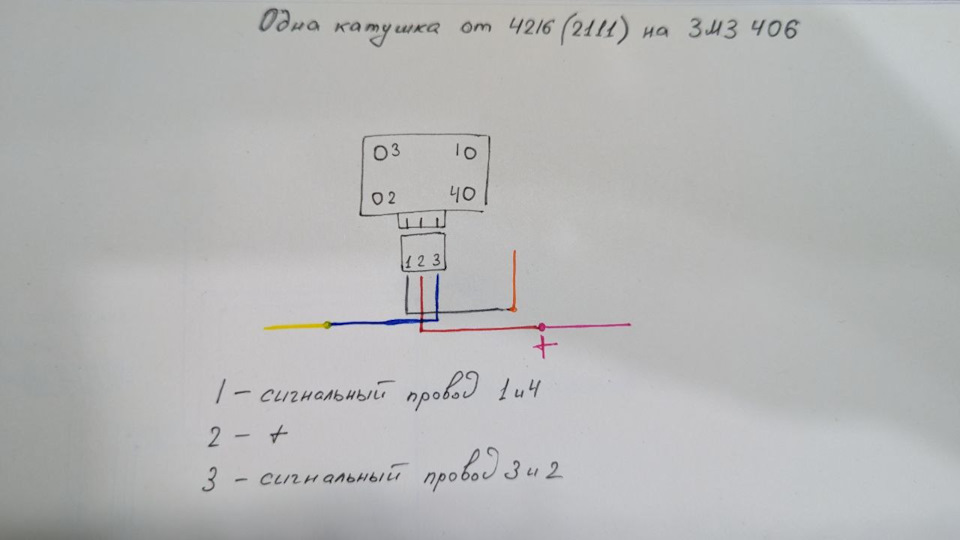 Одна катушка от 4216 (2111) на ЗМЗ 406
3 1
2 4
1 2 3
+
1 - сигнальный провод 1 и 4
2 - +
3 - сигнальный провод 3 и 2